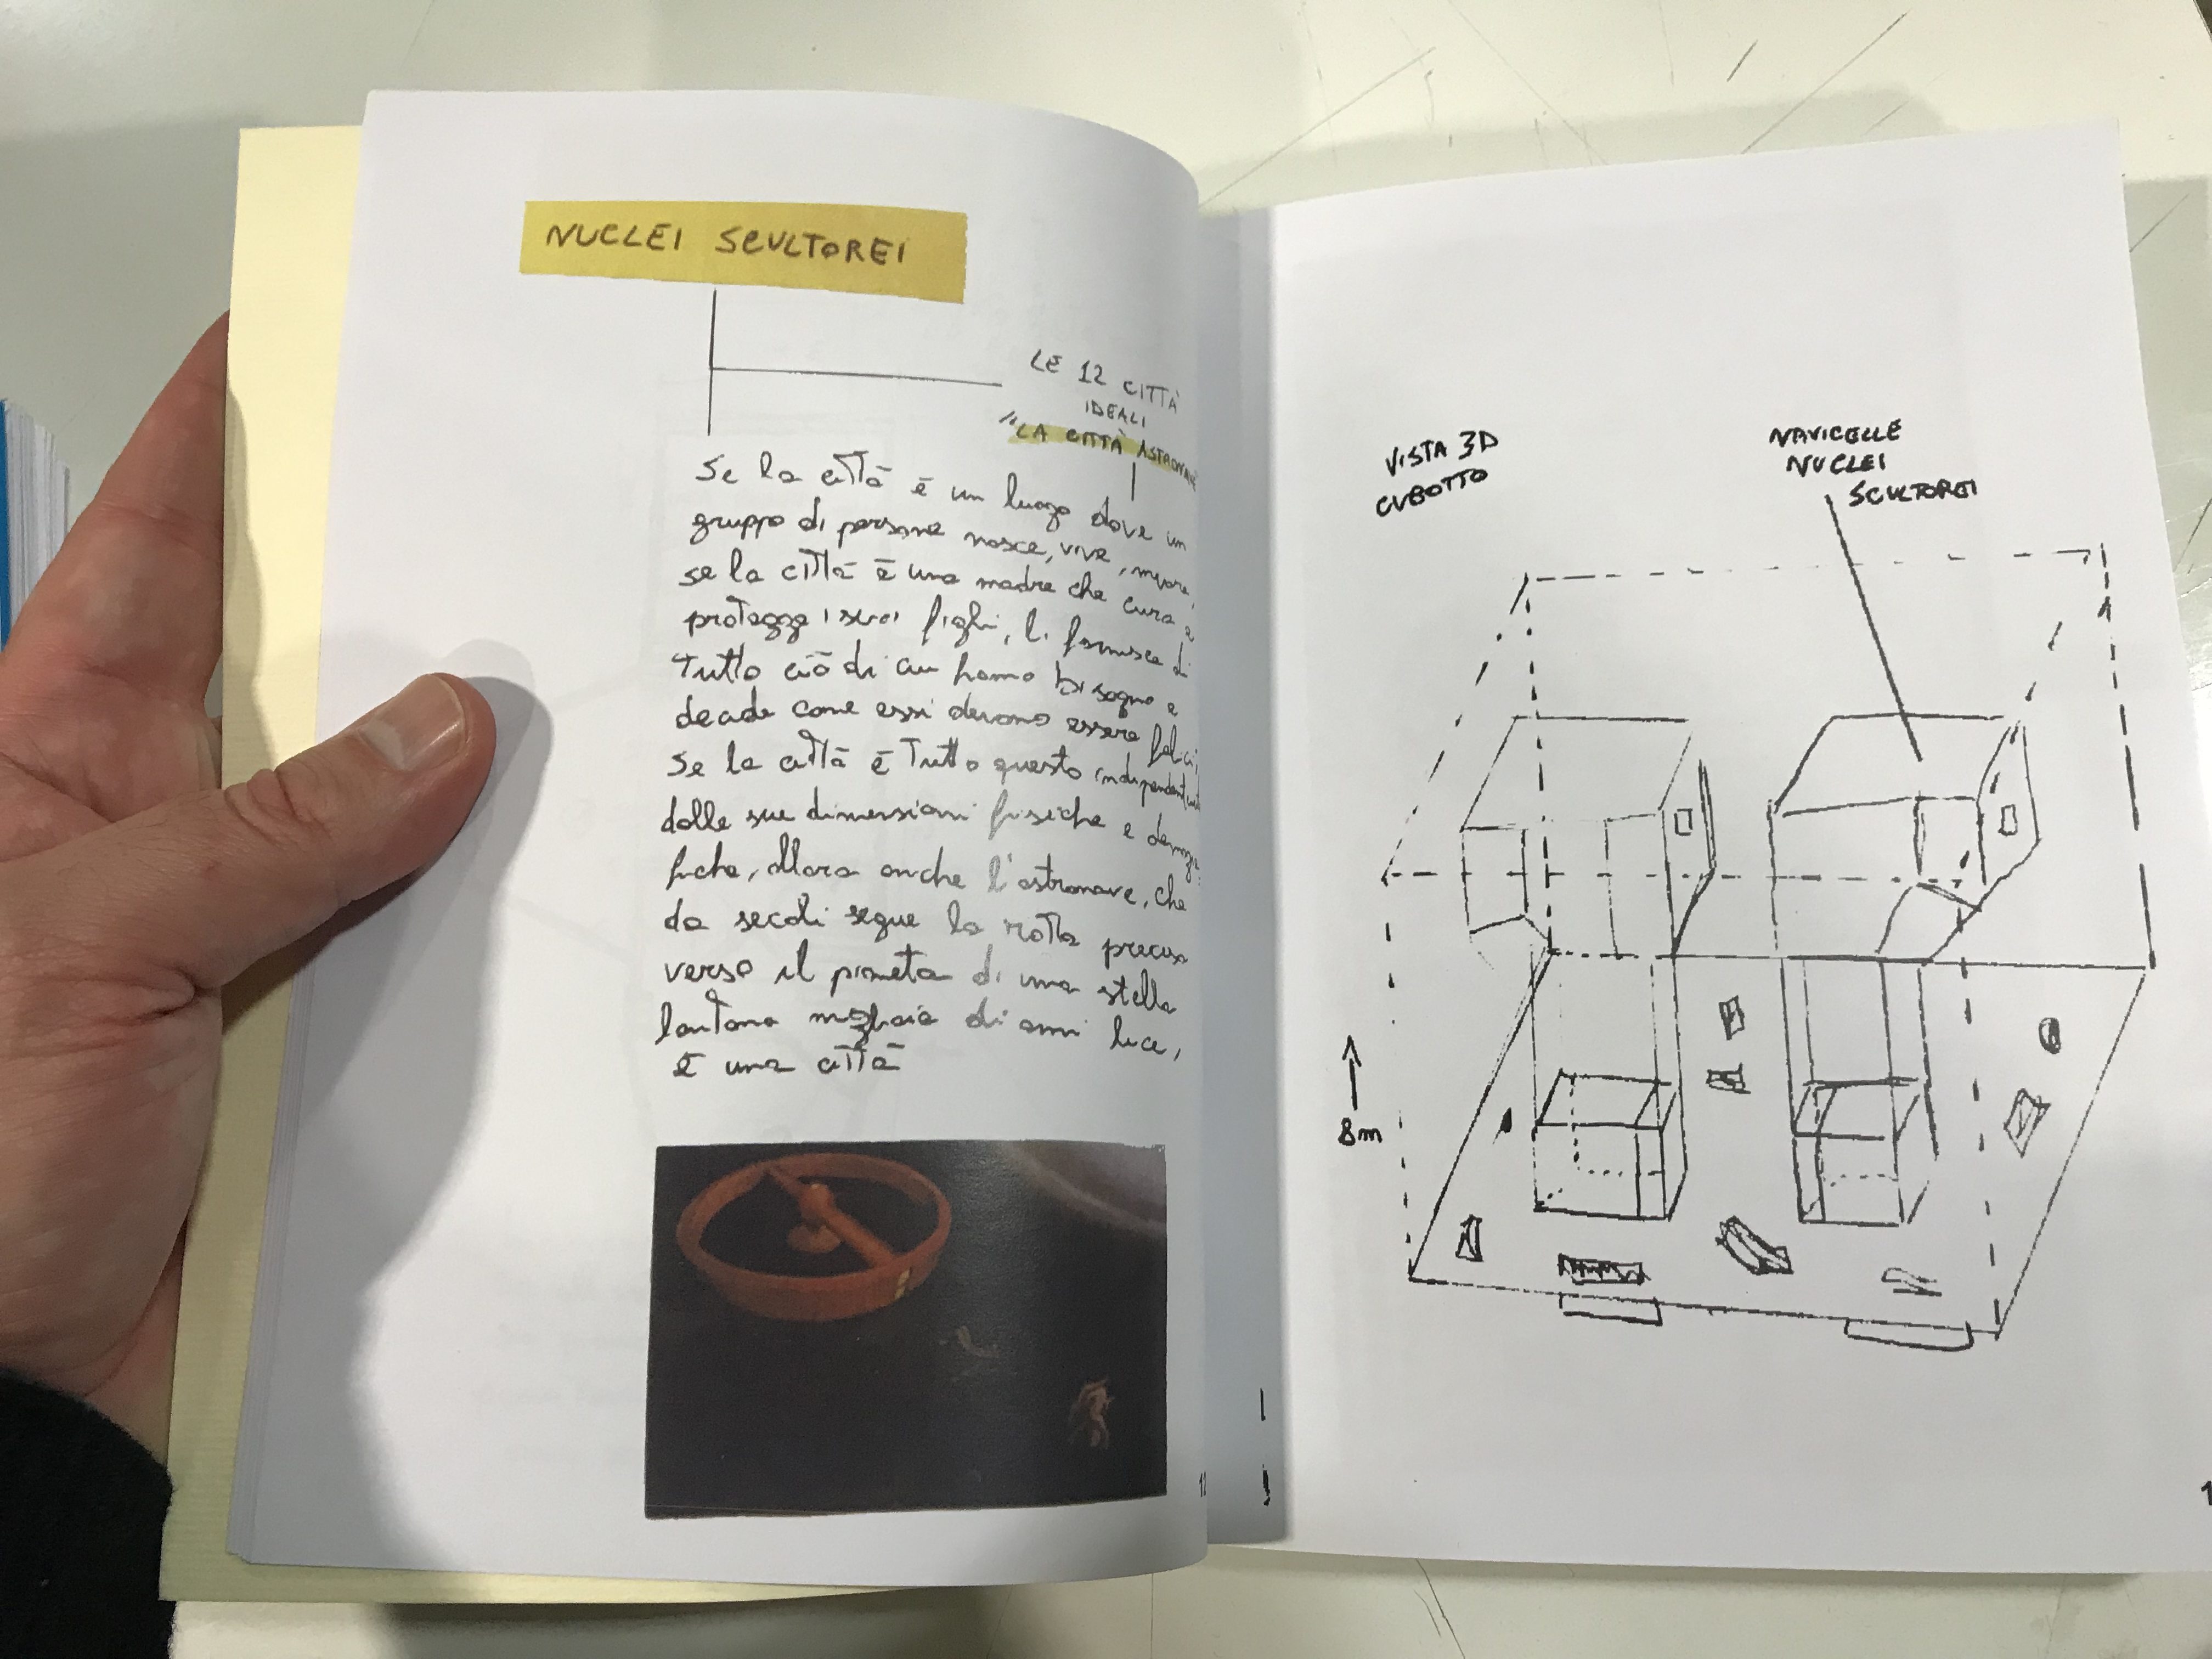 NUCLEI SCULTOREI
LE 12 CITTÀ
IDEALI
"LA CITTÀ ASTRONAVE
Se la città è un luogo dove un
gruppo di persone nasce, vive, muore,
se la città è una madre che cura e
protegge i suoi figli, li fornisce di
tutto ciò di cui hanno bisogno e
decide come essi devono essere felici,
se la città è tutto questo
dalle sue dimensioni fisiche e
fiche, allora anche l'astronave, che
da secoli segue la rotta precisa
verso il pianeta di una stella
lontana migliaia di anni luce,
è una città
VISTA 3D
CUBOTTO
NAVICELLE
NUCLEI
SCULTOREI
8m